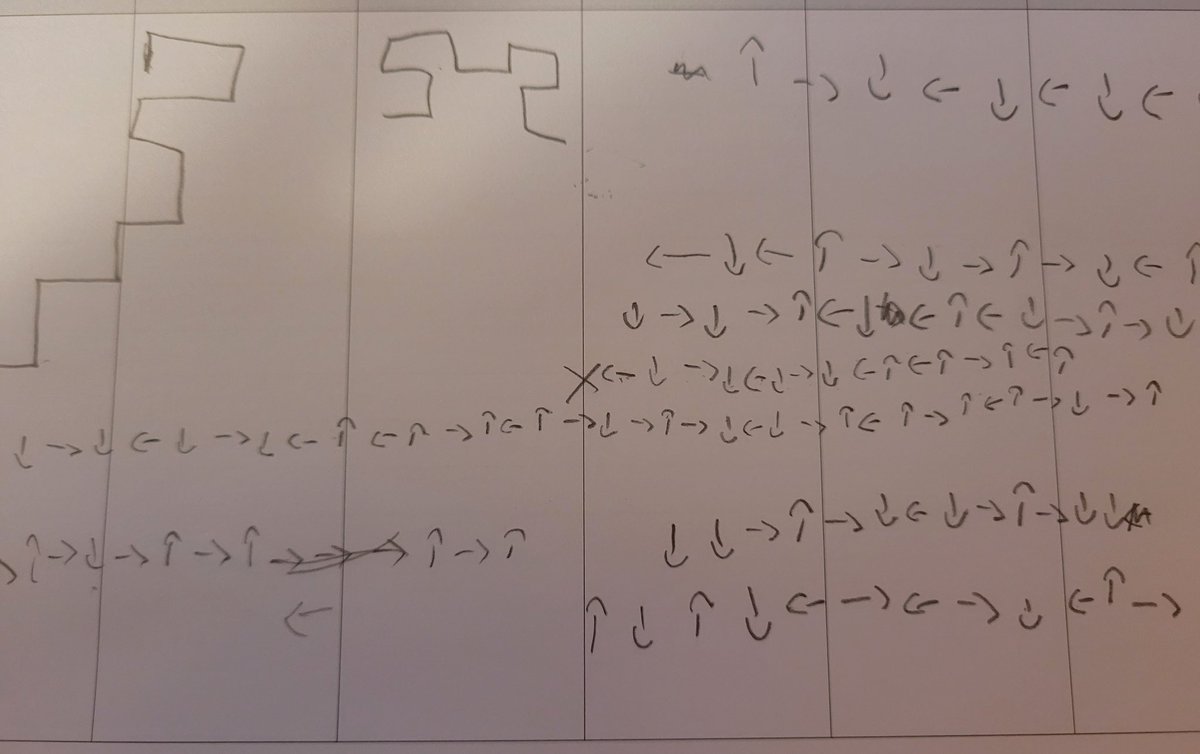 ↑ → ↓ ← ↓ ← ↓ ←
← ↓ ← ↑ → ↓ → ↑ → ↓ ← ↑
↓ → ↓ → ↑ ← ↓ ← ↑ ← ↓ → ↑ → ↓
X ← ↓ → ↓ ← ↓ → ↓ ← ↑ ← ↑ → ↑ ← ↑
↓ → ↓ ← ↓ → ↓ ← ↑ ← ↑ → ↑ ← ↑ → ↓ → ↑ → ↓ ← ↓ → ↑ ← ↑ → ↑ ← ↑ → ↓ → ↑
↓ ↓ → ↑ → ↓ ← ↓ → ↑ → ↓ ↓
→ ↑ → ↓ → ↑ → ↑ → ↑ → ↑
←
↑ ↓ ↑ ↓ ← → ← → ↓ ← ↑ →